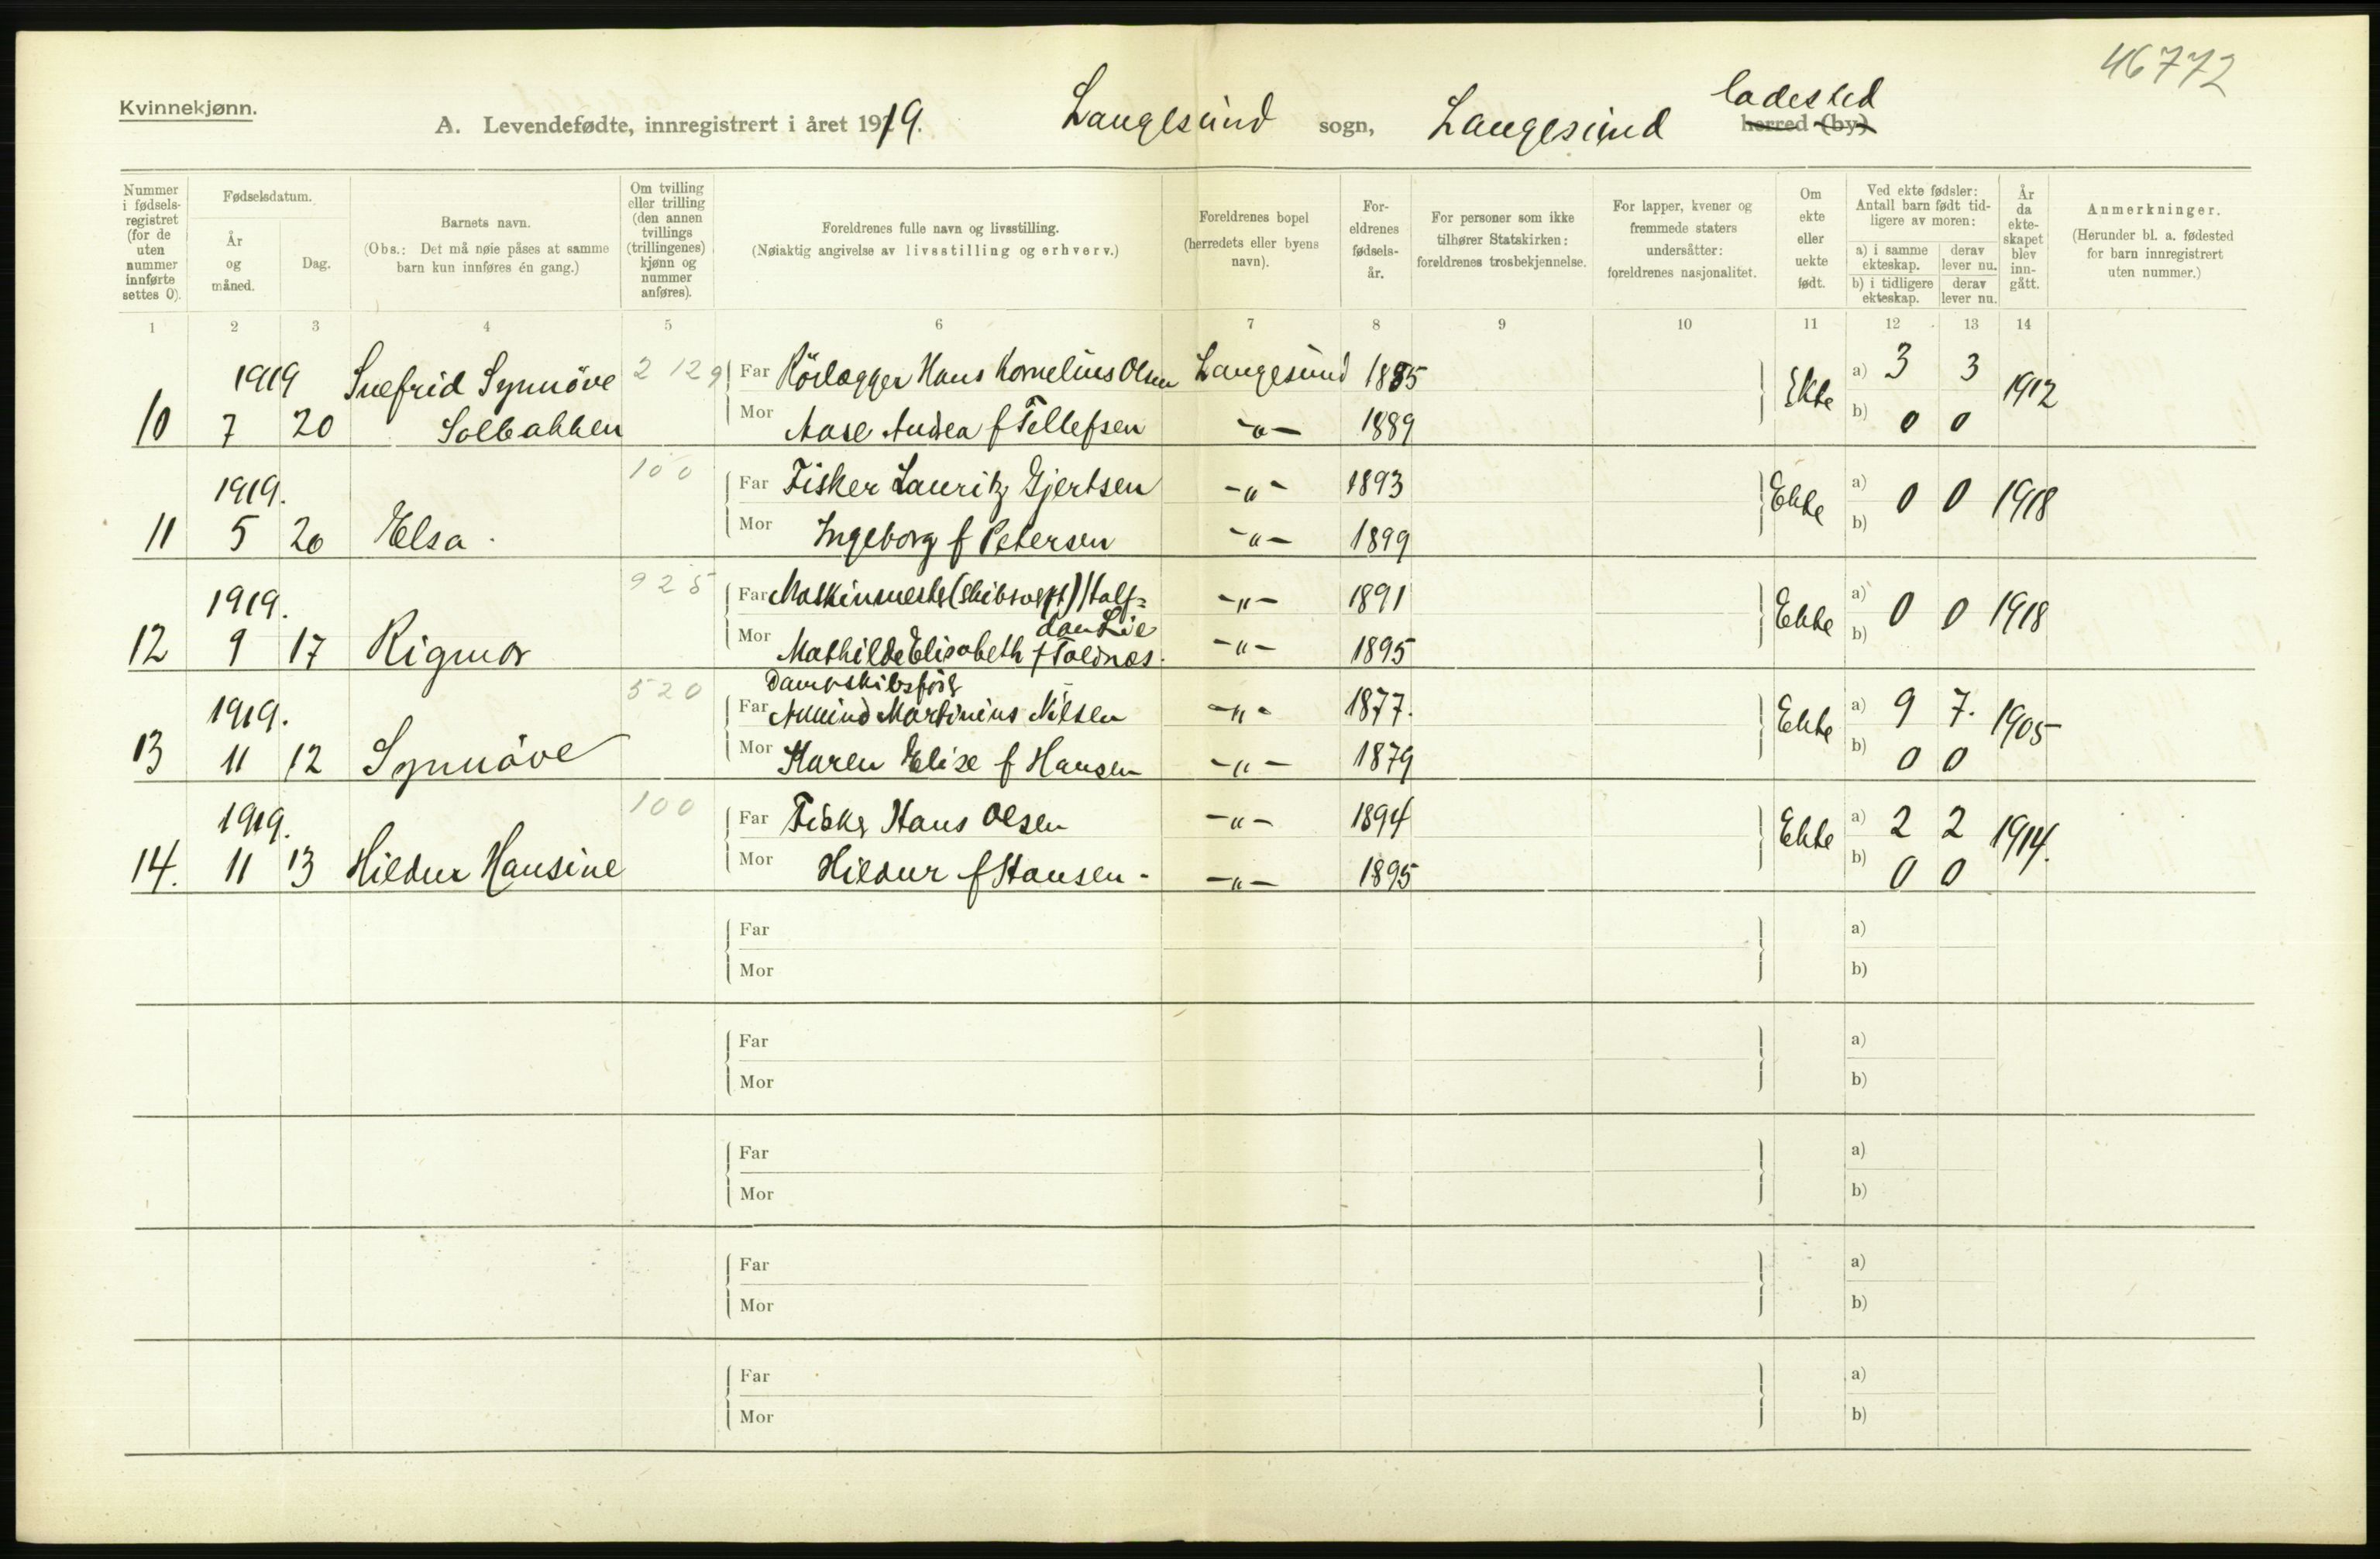 46772
Kvinnekjønn.
A. Levendefødte, innregistrert i året 1919. Langesund sogn, Langesund ladested herred (by)
Nummer i fødselsregistret (for de uten nummer innførte settes 0).
Fødselsdatum.
År og måned.
Dag.
Barnets navn.
(Obs.: Det må nøie påses at samme barn kun innføres én gang.)
Om tvilling eller trilling (den annen tvillings (trillingenes) kjønn og nummer anføres).
Foreldrenes fulle navn og livsstilling.
(Nøiaktig angivelse av livsstilling og erhverv.)
Foreldrenes bopel (herredets eller byens navn).
Foreldrenes fødselsår.
For personer som ikke tilhører Statskirken: foreldrenes trosbekjennelse.
For lapper, kvener og fremmede staters undersåtter: foreldrenes nasjonalitet.
Om ekte eller uekte født.
Ved ekte fødsler: Antall barn født tidligere av moren:
a) i samme ekteskap. derav lever nu.
b) i tidligere ekteskap. derav lever nu.
År da ekteskapet blev inngått.
Anmerkninger.
(Herunder bl. a. fødested for barn innregistrert uten nummer.)
1 2 3 4 5 6 7 8 9 10 11 12 13 14
1919 Snefrid Synnöve 2 129 Far Rörlægger Hans Kornelius Olsen Langesund 1885 Ekte a) 3 3 1912
10 7 20 Solbakken Mor Aase Andrea f Tellefsen -"- 1889 b) 0 0
1919. 100 Far Fisker Lauritz Gjertsen -"- 1893 Ekte a) 0 0 1918
11 5 20 Elsa. Mor Ingeborg f Petersen -"- 1899 b)
1919. 925 Far Maskinmester Half= -"- 1891 Ekte a) 0 0 1918
dan Lie
12 9 17 Rigmor Mor Mathilde Elisabeth f Toldnæs. -"- 1895 b)
Dampskibsför
1919. 520 Far Martinius Nilsen -"- 1877. Ekte a) 9 7. 1905
13 11 12 Synnöve Mor Karen Elise f Hansen -"- 1879 b) 0 0
1919. 100 Far Fisker Hans Olsen -"- 1894 Ekte a) 2 2 1914.
14. 11 13 Hildur Hansine Mor Hildur f Hansen - -"- 1895 b) 0 0
Far a)
Mor b)
Far a)
Mor b)
Far a)
Mor b)
Far a)
Mor b)
Far a)
Mor b)